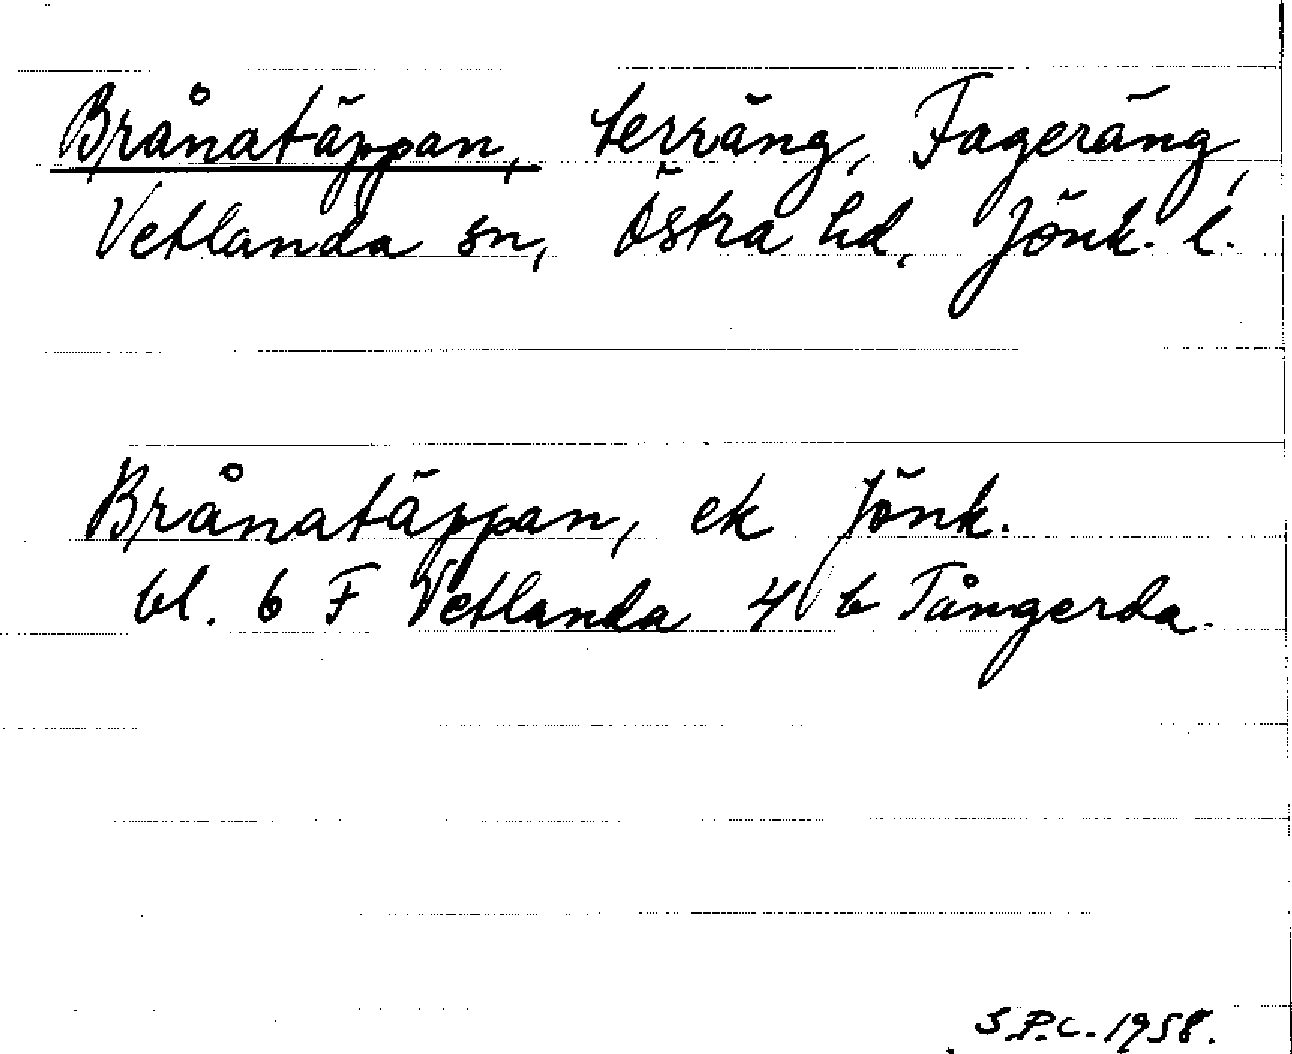 Brånatäppan, terräng, Fageräng,
Vetlanda sn, Östra hd, Jönk. l.
Brånatäppan, ek Jönk.
bl. 6 F Vetlanda 4 b Tångerda.
S.P.C. 1958.